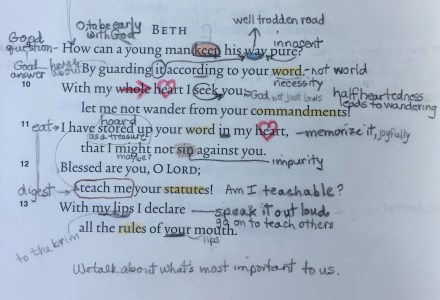 well trodden road
O, to be early
with God
BETH
Good
question - How can a young man keep his way pure?
innocent
God
answer
By guarding it according to your word. - not world
necessity
10
With my whole heart I seek you; God, not just laws
halfheartedness
leads to wandering
let me not wander from your commandments!
hoard
11 eat → I have stored up your word in my heart, - memorize it, joyfully
as a treasure
that I might not sin against you.
maybe?
impurity
12
Blessed are you, O LORD;
digest → teach me your statutes! Am I teachable?
13
With my lips I declare - speak it out loud
go on to teach others
all the rules of your mouth.
lips
to the brim
We talk about what's most important to us.